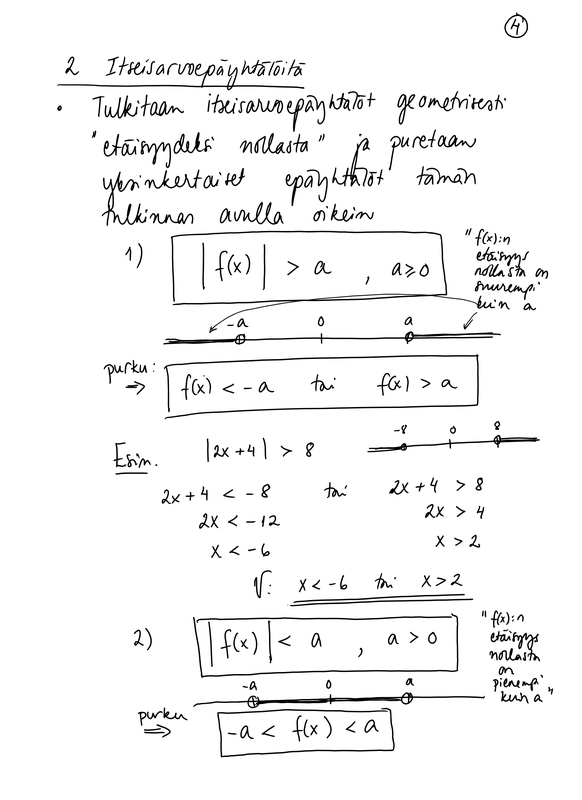 4
2 Itseisarvoepäyhtälöitä
• Tulkitaan itseisarvoepäyhtälöt geometrisesti
"etäisyydeksi nollasta" ja puretaan
yksinkertaiset epäyhtälöt tämän
tulkinnan avulla oikein
1) |f(x)| > a , a≥0
"f(x):n
etäisyys
nollasta on
suurempi
kuin a
-a 0 a
purku:
⇒ f(x) < -a tai f(x) > a
Esim. |2x+4| > 8
-8 0 8
2x+4 < -8 tai 2x+4 > 8
2x < -12 2x > 4
x < -6 x > 2
V: x < -6 tai x > 2
2) |f(x)| < a , a > 0
"f(x):n
etäisyys
nollasta
on
pienempi
kuin a"
-a 0 a
purku
⇒ -a < f(x) < a